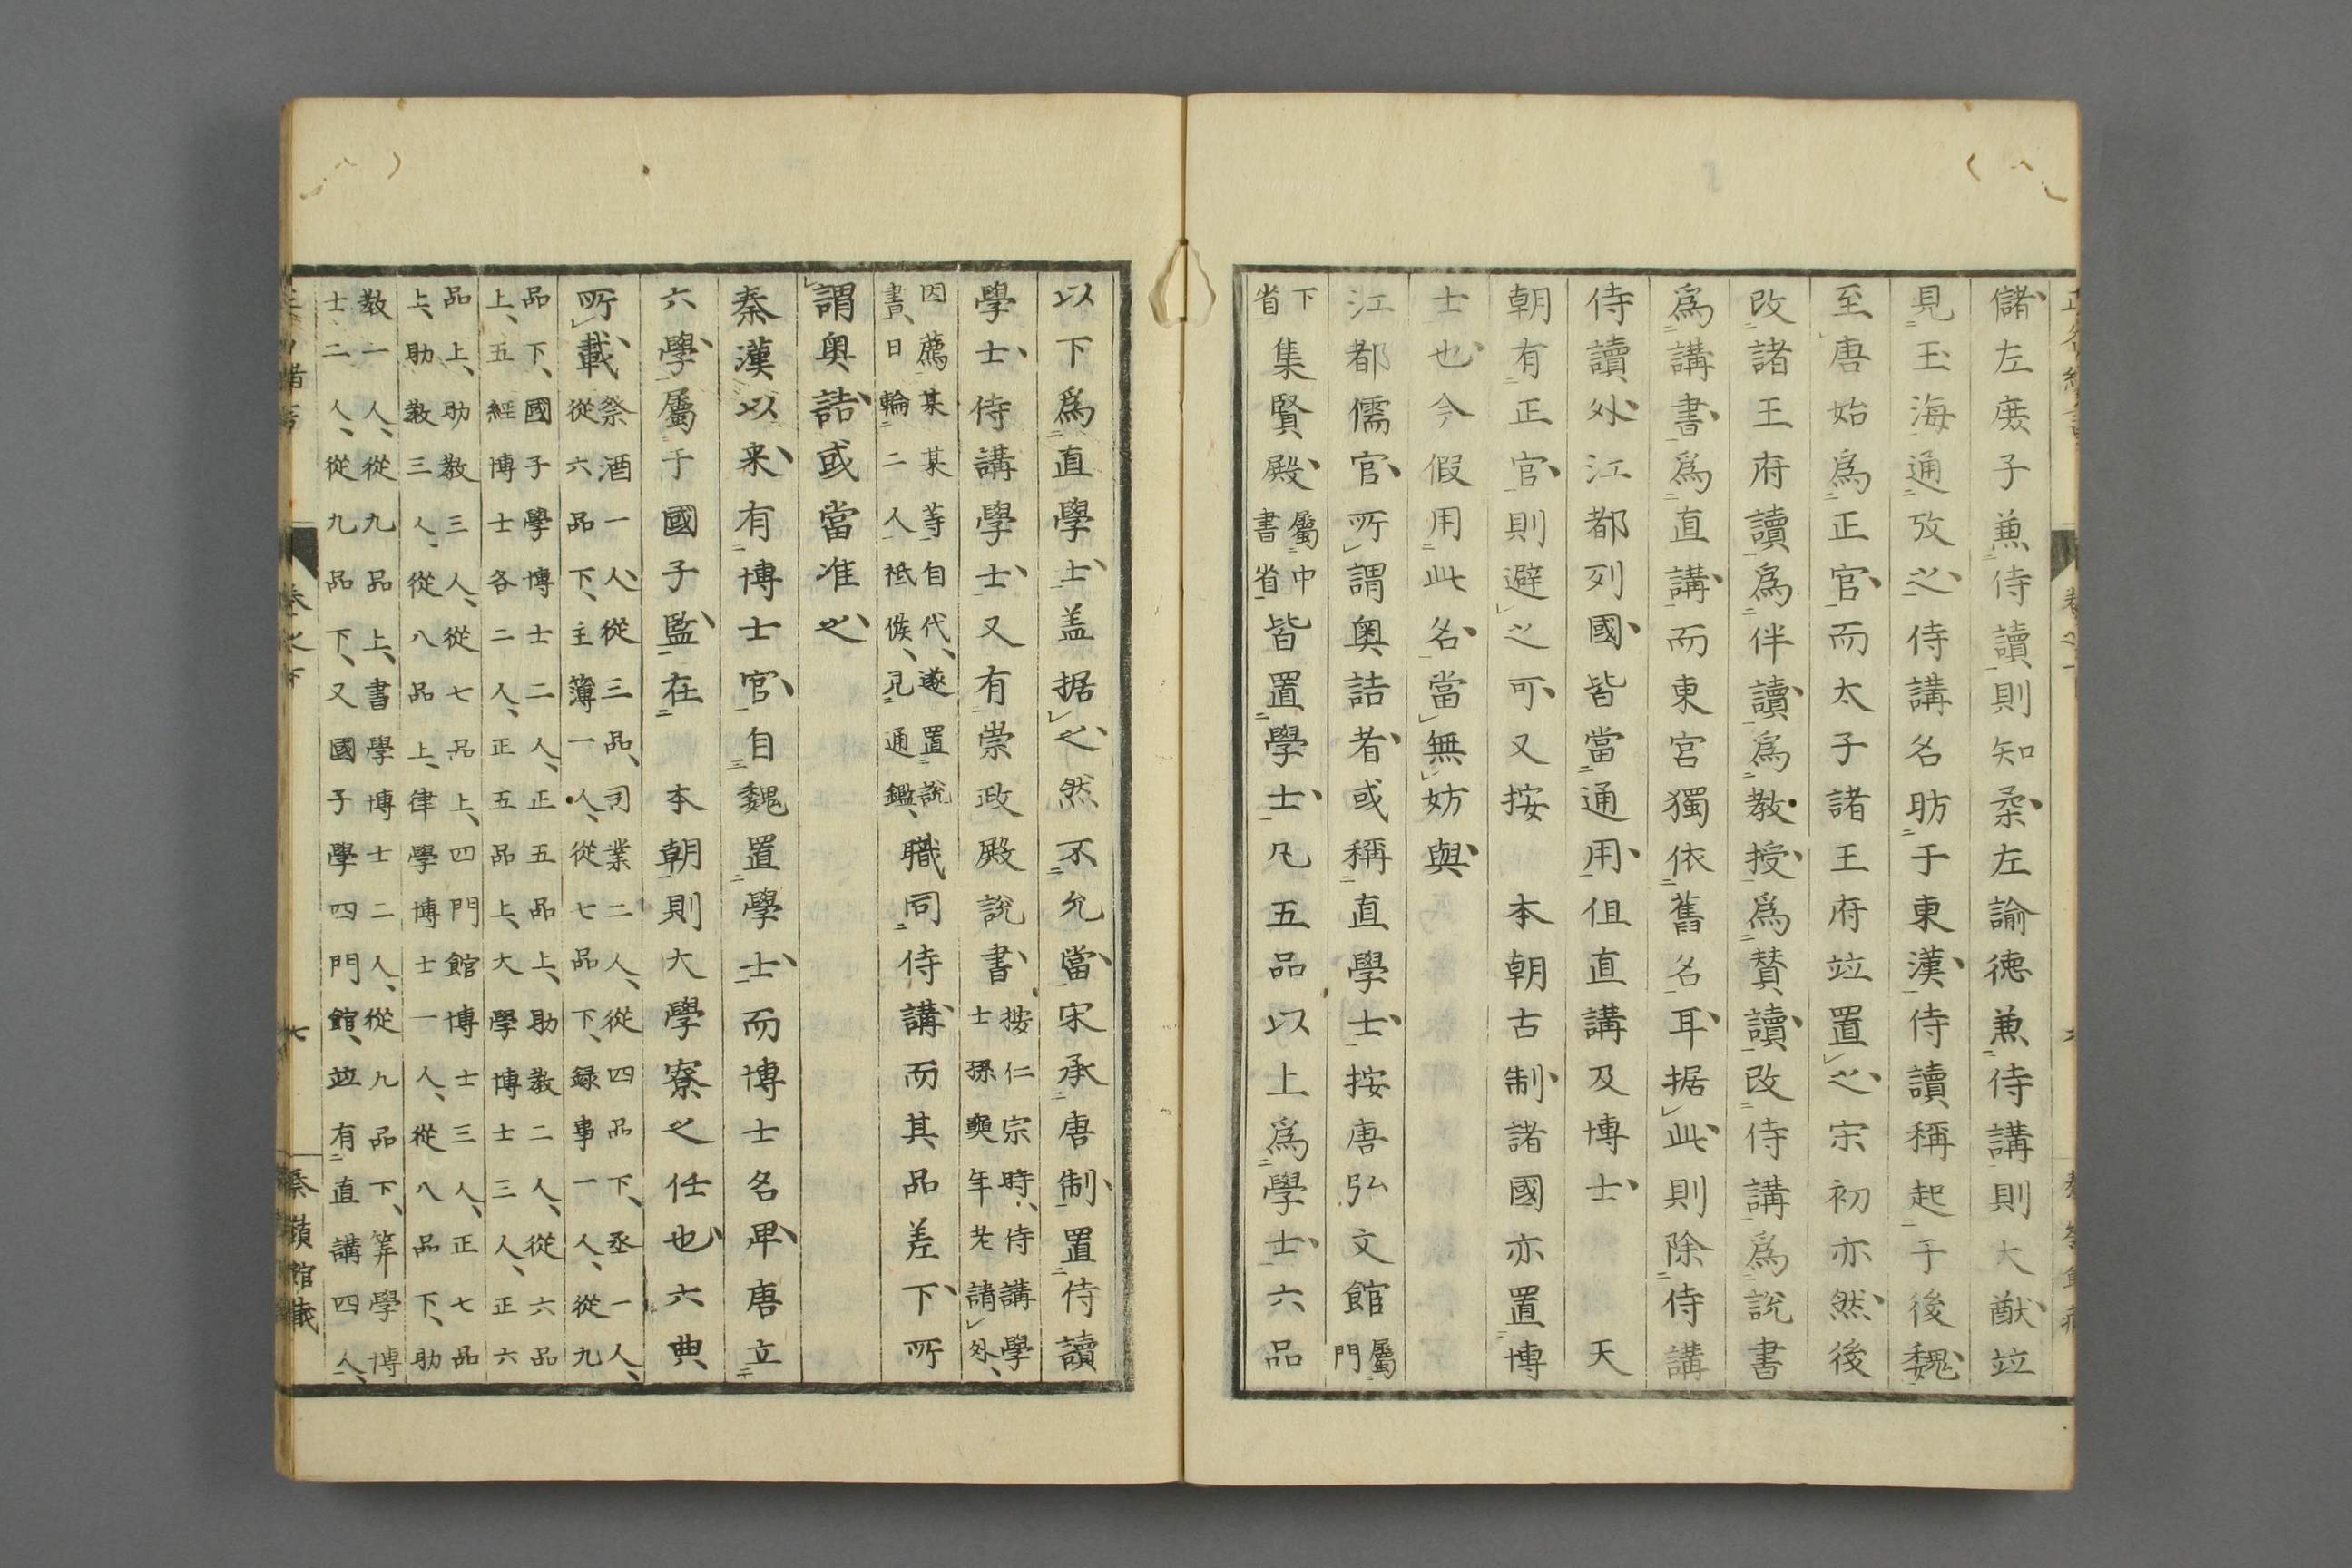 儲左庶子兼侍讀則知柔左諭德兼侍講則大猷竝
見玉海通攷之侍講名昉于東漢侍讀稱起于後魏
至唐始爲正官而太子諸王府竝置之宋初亦然後
改諸王府讀爲伴讀爲教授爲賛讀改侍講爲說書
爲講書爲直講而東宮獨依舊名耳据此則除侍講
侍讀外江都列國皆當通用但直講及博士 天
朝有正官則避之可又按 本朝古制諸國亦置博
士也今假用此名當無妨與
江都儒官所謂奧詰者或稱直學士按唐弘文館屬門
下省集賢殿屬中書省皆置學士凡五品以上爲學士六品
以下爲直學士盖据之然不允當宋承唐制置侍讀
學士侍講學士又有崇政殿說書按仁宗時侍講學士孫奭年老請外
因薦某某等自代遂置說書日輪二人祗候見通鑑職同侍講而其品差下所
謂奧詰或當准之
秦漢以来有博士官自魏置學士而博士名卑唐立
六學屬于國子監在 本朝則大學寮之任也六典
所載祭酒一人從三品司業二人從四品下丞一人從六品下主簿一人從七品下録事一人從九
品下國子學博士二人正五品上助教二人從六品上五經博士各二人正五品上大學博士三人正六
品上助教三人從七品上四門館博士三人正七品上助教三人從八品上律學博士一人從八品下助
教一人從九品上書學博士二人從九品下筭學博士二人從九品下又國子學四門館竝有直講四人
卷之下 七